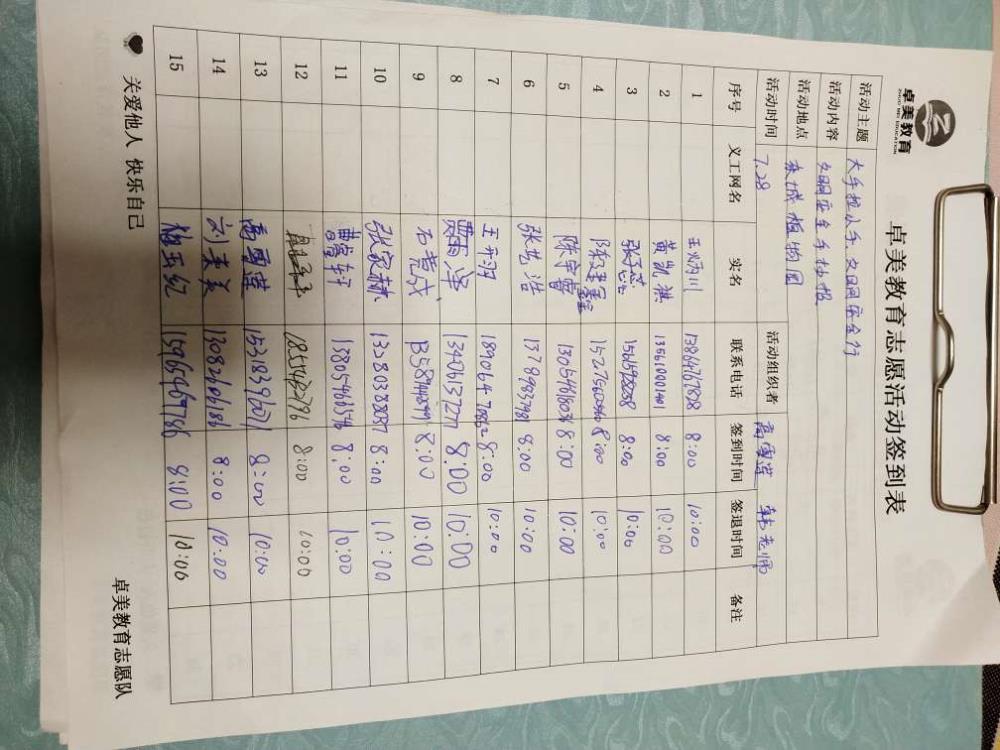 卓美教育
ZHUO MEI EDUCATION
卓美教育志愿活动签到表
活动主题 大手拉小手 文明安全行
活动内容 文明安全手抄报
活动地点 东城植物园
活动时间 7.28 活动组织者 高雪莲 韩老师
序号 义工网名 实名 联系电话 签到时间 签退时间 备注
1 王炳川 8:00 10:00
2 黄凯祺 13561000141 8:00 10:00
3 8:00 10:00
4 8:00 10:00
5 陈宇馨 8:00 10:00
6 张艺浩 8:00 10:00
7 王开羽 8:00 10:00
8 贾雨泽 13406137271 8:00 10:00
9 8:00 10:00
10 张家赫 13280338037 8:00 10:00
11 曹馨轩 13805466354 8:00 10:00
12 1855462796 8:00 10:00
13 高雪莲 15318396271 8:00 10:00
14 刘美美 8:00 10:00
15 梅玉红 15965467786 8:00 10:00
关爱他人 快乐自己
卓美教育志愿队